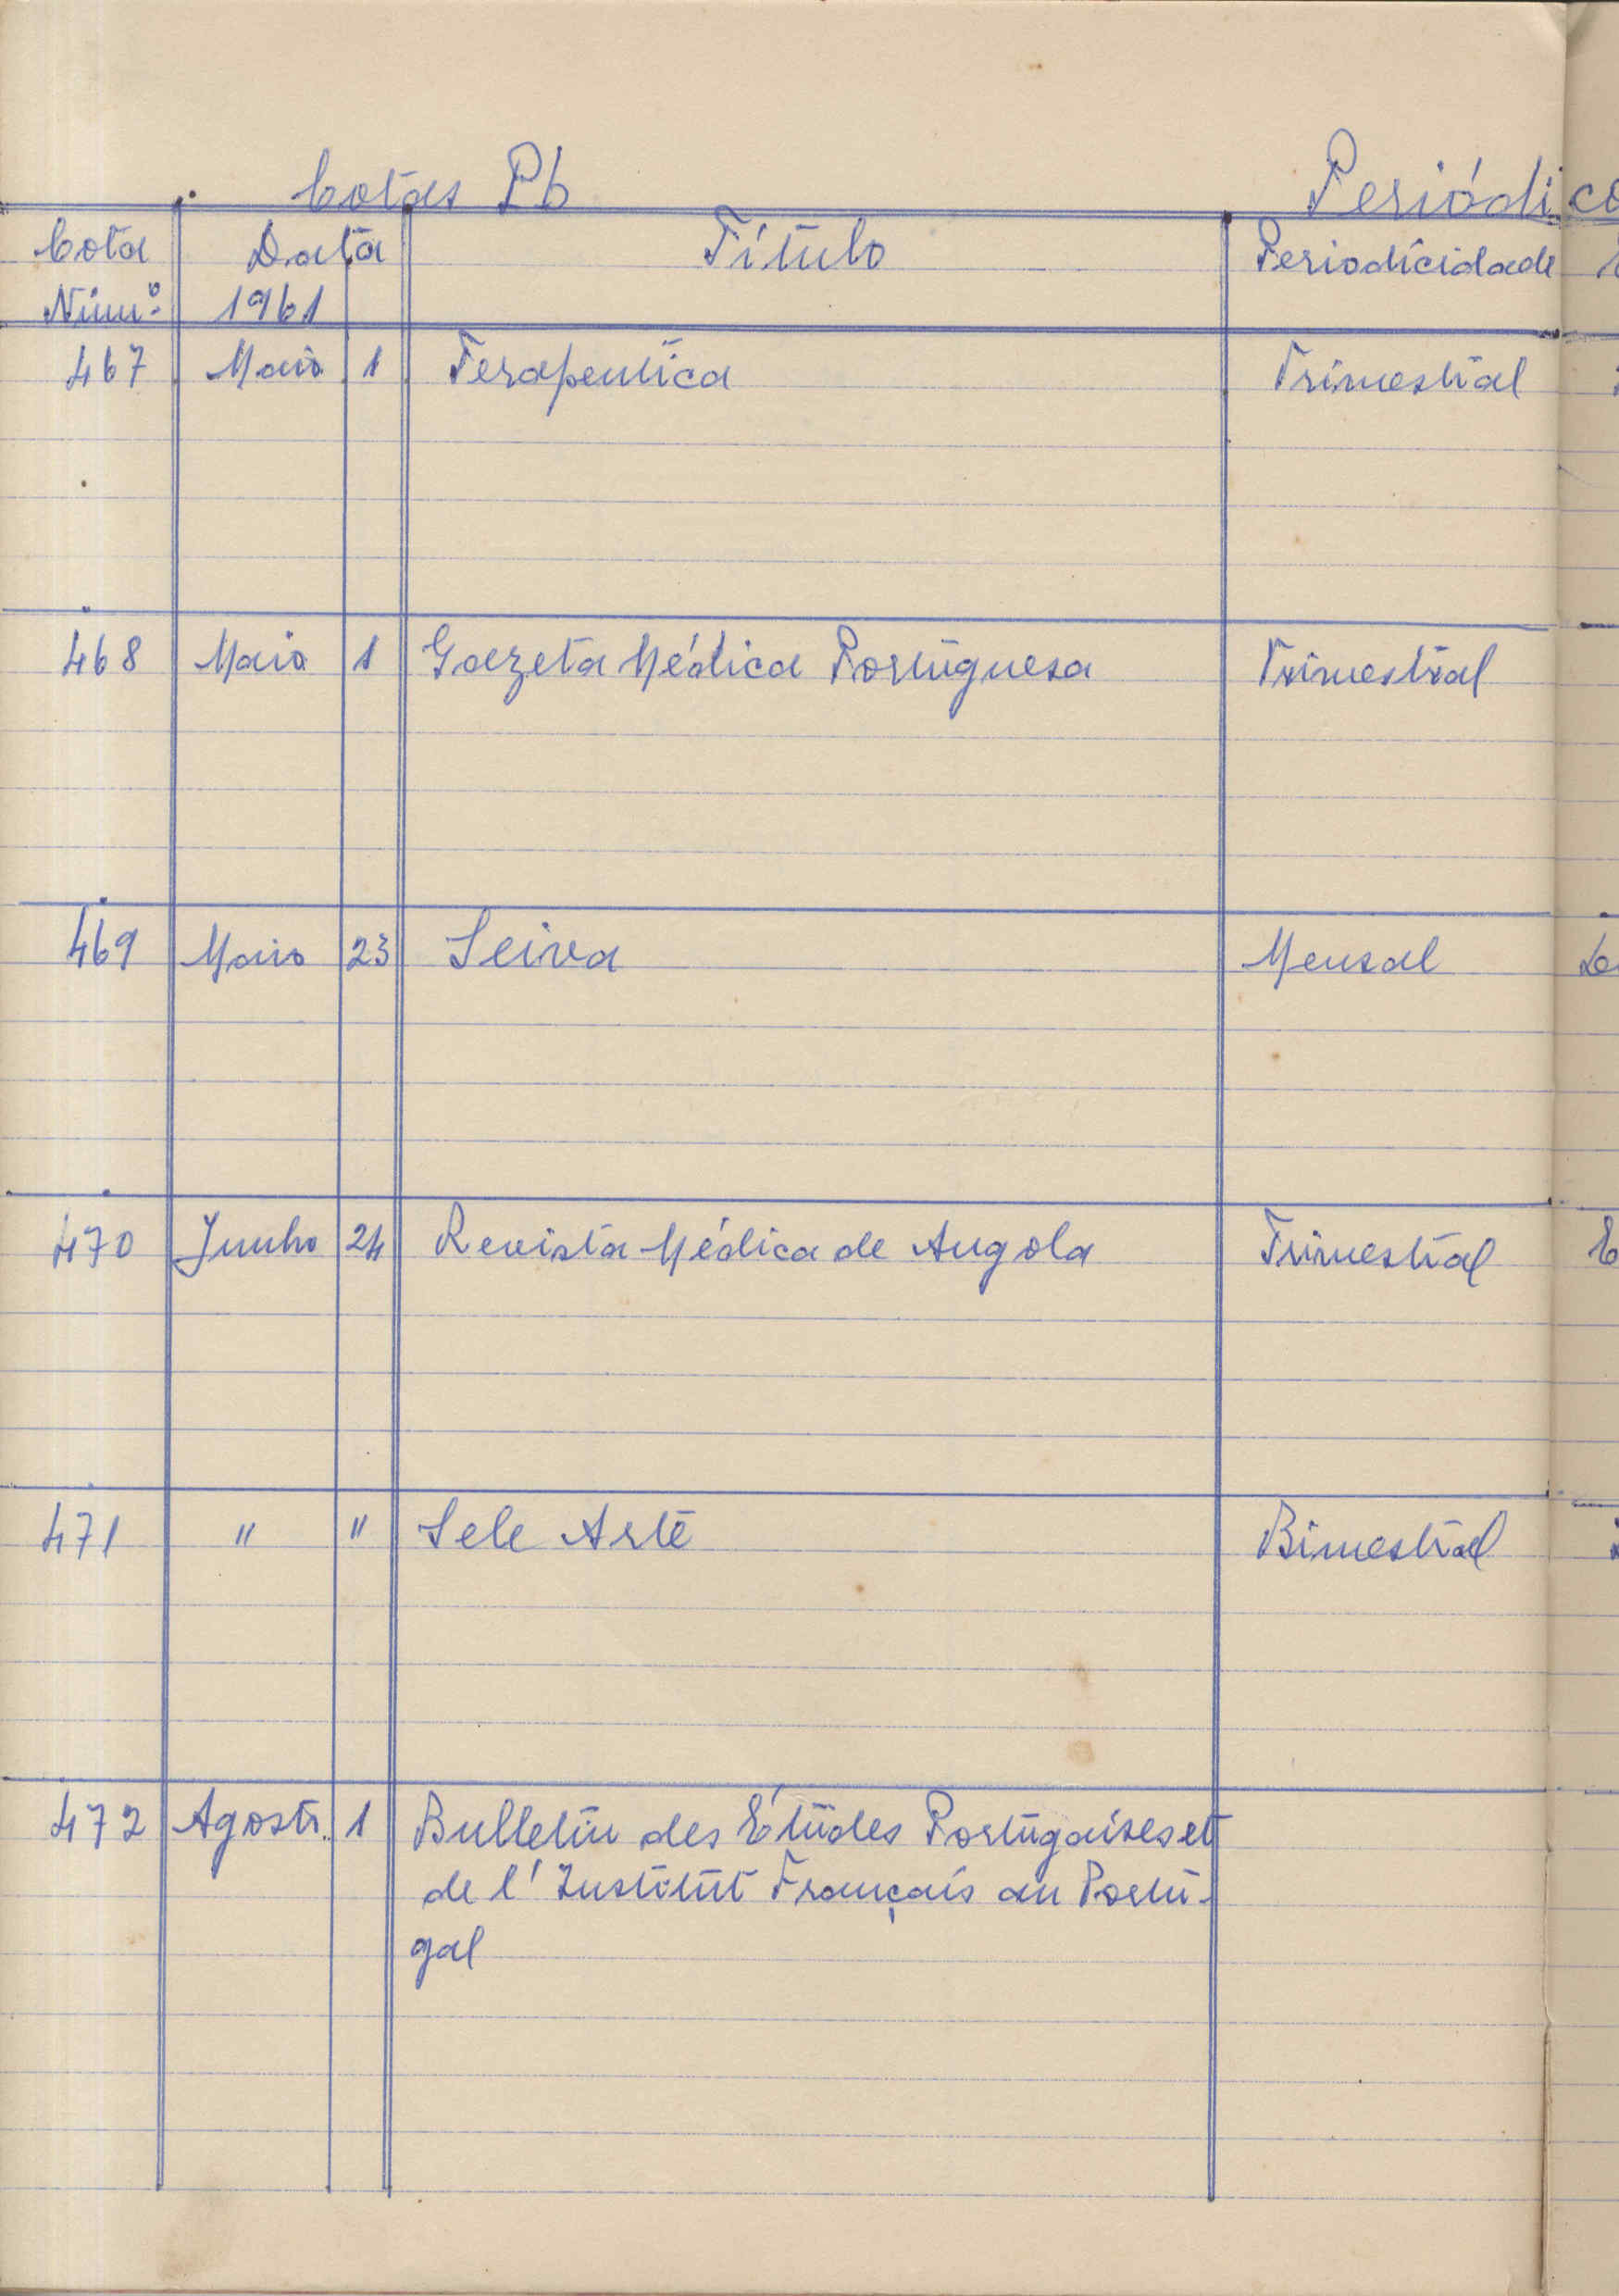 Cotas Pb Periódico
Cota Data Título Periodicidade
Núm.º 1961
467 Maio 1 Terapeutica Trimestral
468 Maio 1 Gazeta Médica Portuguesa Trimestral
469 Maio 23 Seiva Mensal
470 Junho 24 Revista Médica de Angola Trimestral
471 " " Sele Arte Bimestral
472 Agosto. 1 Bulletin des Études Portugaises et
de l'Institut Français au Portu-
gal